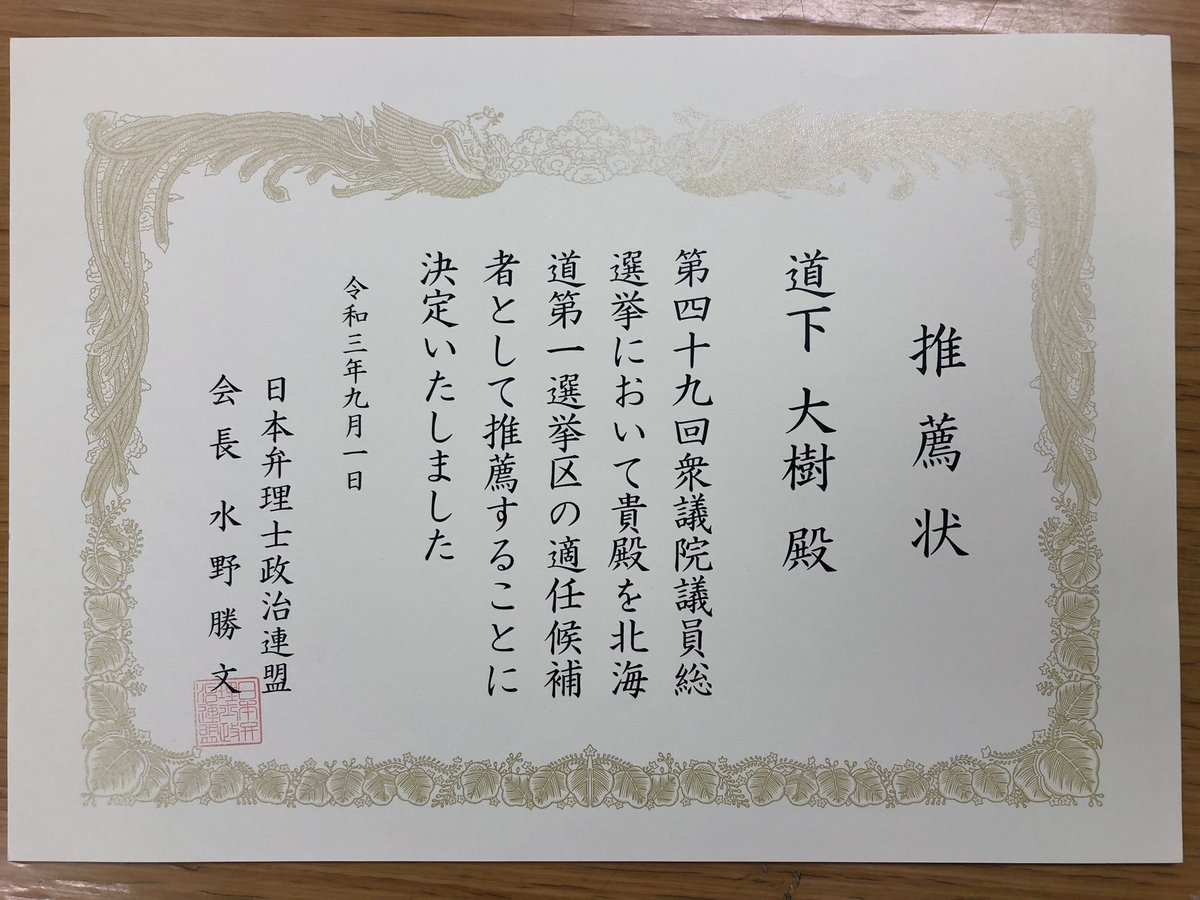 推薦状
道下大樹殿
第四十九回衆議院議員総
選挙において貴殿を北海
道第一選挙区の適任候補
者として推薦することに
決定いたしました
令和三年九月一日
日本弁理士政治連盟
会長水野勝文
日本弁
理士政
治連盟